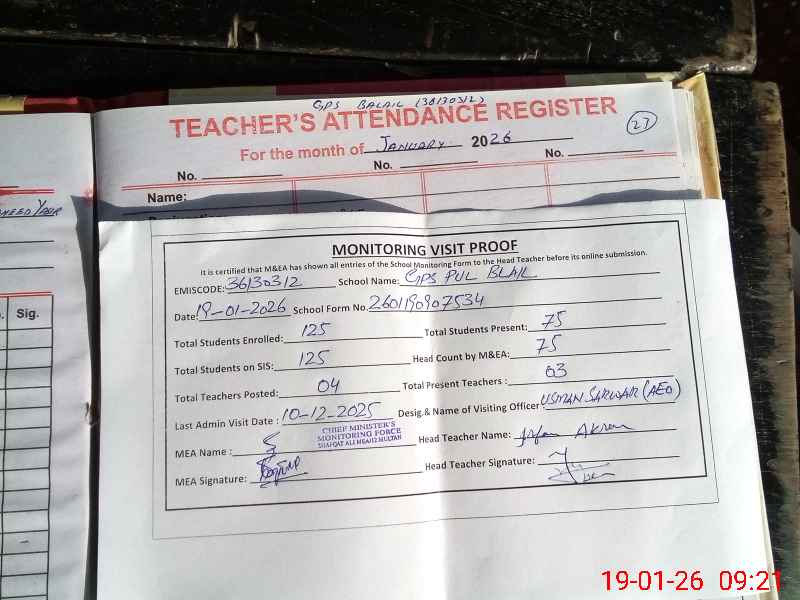 GPS BALAIL (36130312)
TEACHER'S ATTENDANCE REGISTER
(27)
For the month of January 2026
No. No. No.
Name:
MONITORING VISIT PROOF
It is certified that M&EA has shown all entries of the School Monitoring Form to the Head Teacher before its online submission.
EMISCODE: 36130312 School Name: GPS PUL BLAIL
Date: 19-01-2026 School Form No. 2601190907534
Total Students Enrolled: 125 Total Students Present: 75
Total Students on SIS: 125 Head Count by M&EA: 75
Total Teachers Posted: 04 Total Present Teachers : 03
Last Admin Visit Date : 10-12-2025 Desig.& Name of Visiting Officer: USMAN SARWAR (AEO)
MEA Name : Head Teacher Name: Irfan Akram
CHIEF MINISTER'S
MONITORING FORCE
SHAFQAT ALI MEA#12 MULTAN
MEA Signature: Head Teacher Signature:
Sig.
19-01-26 09:21